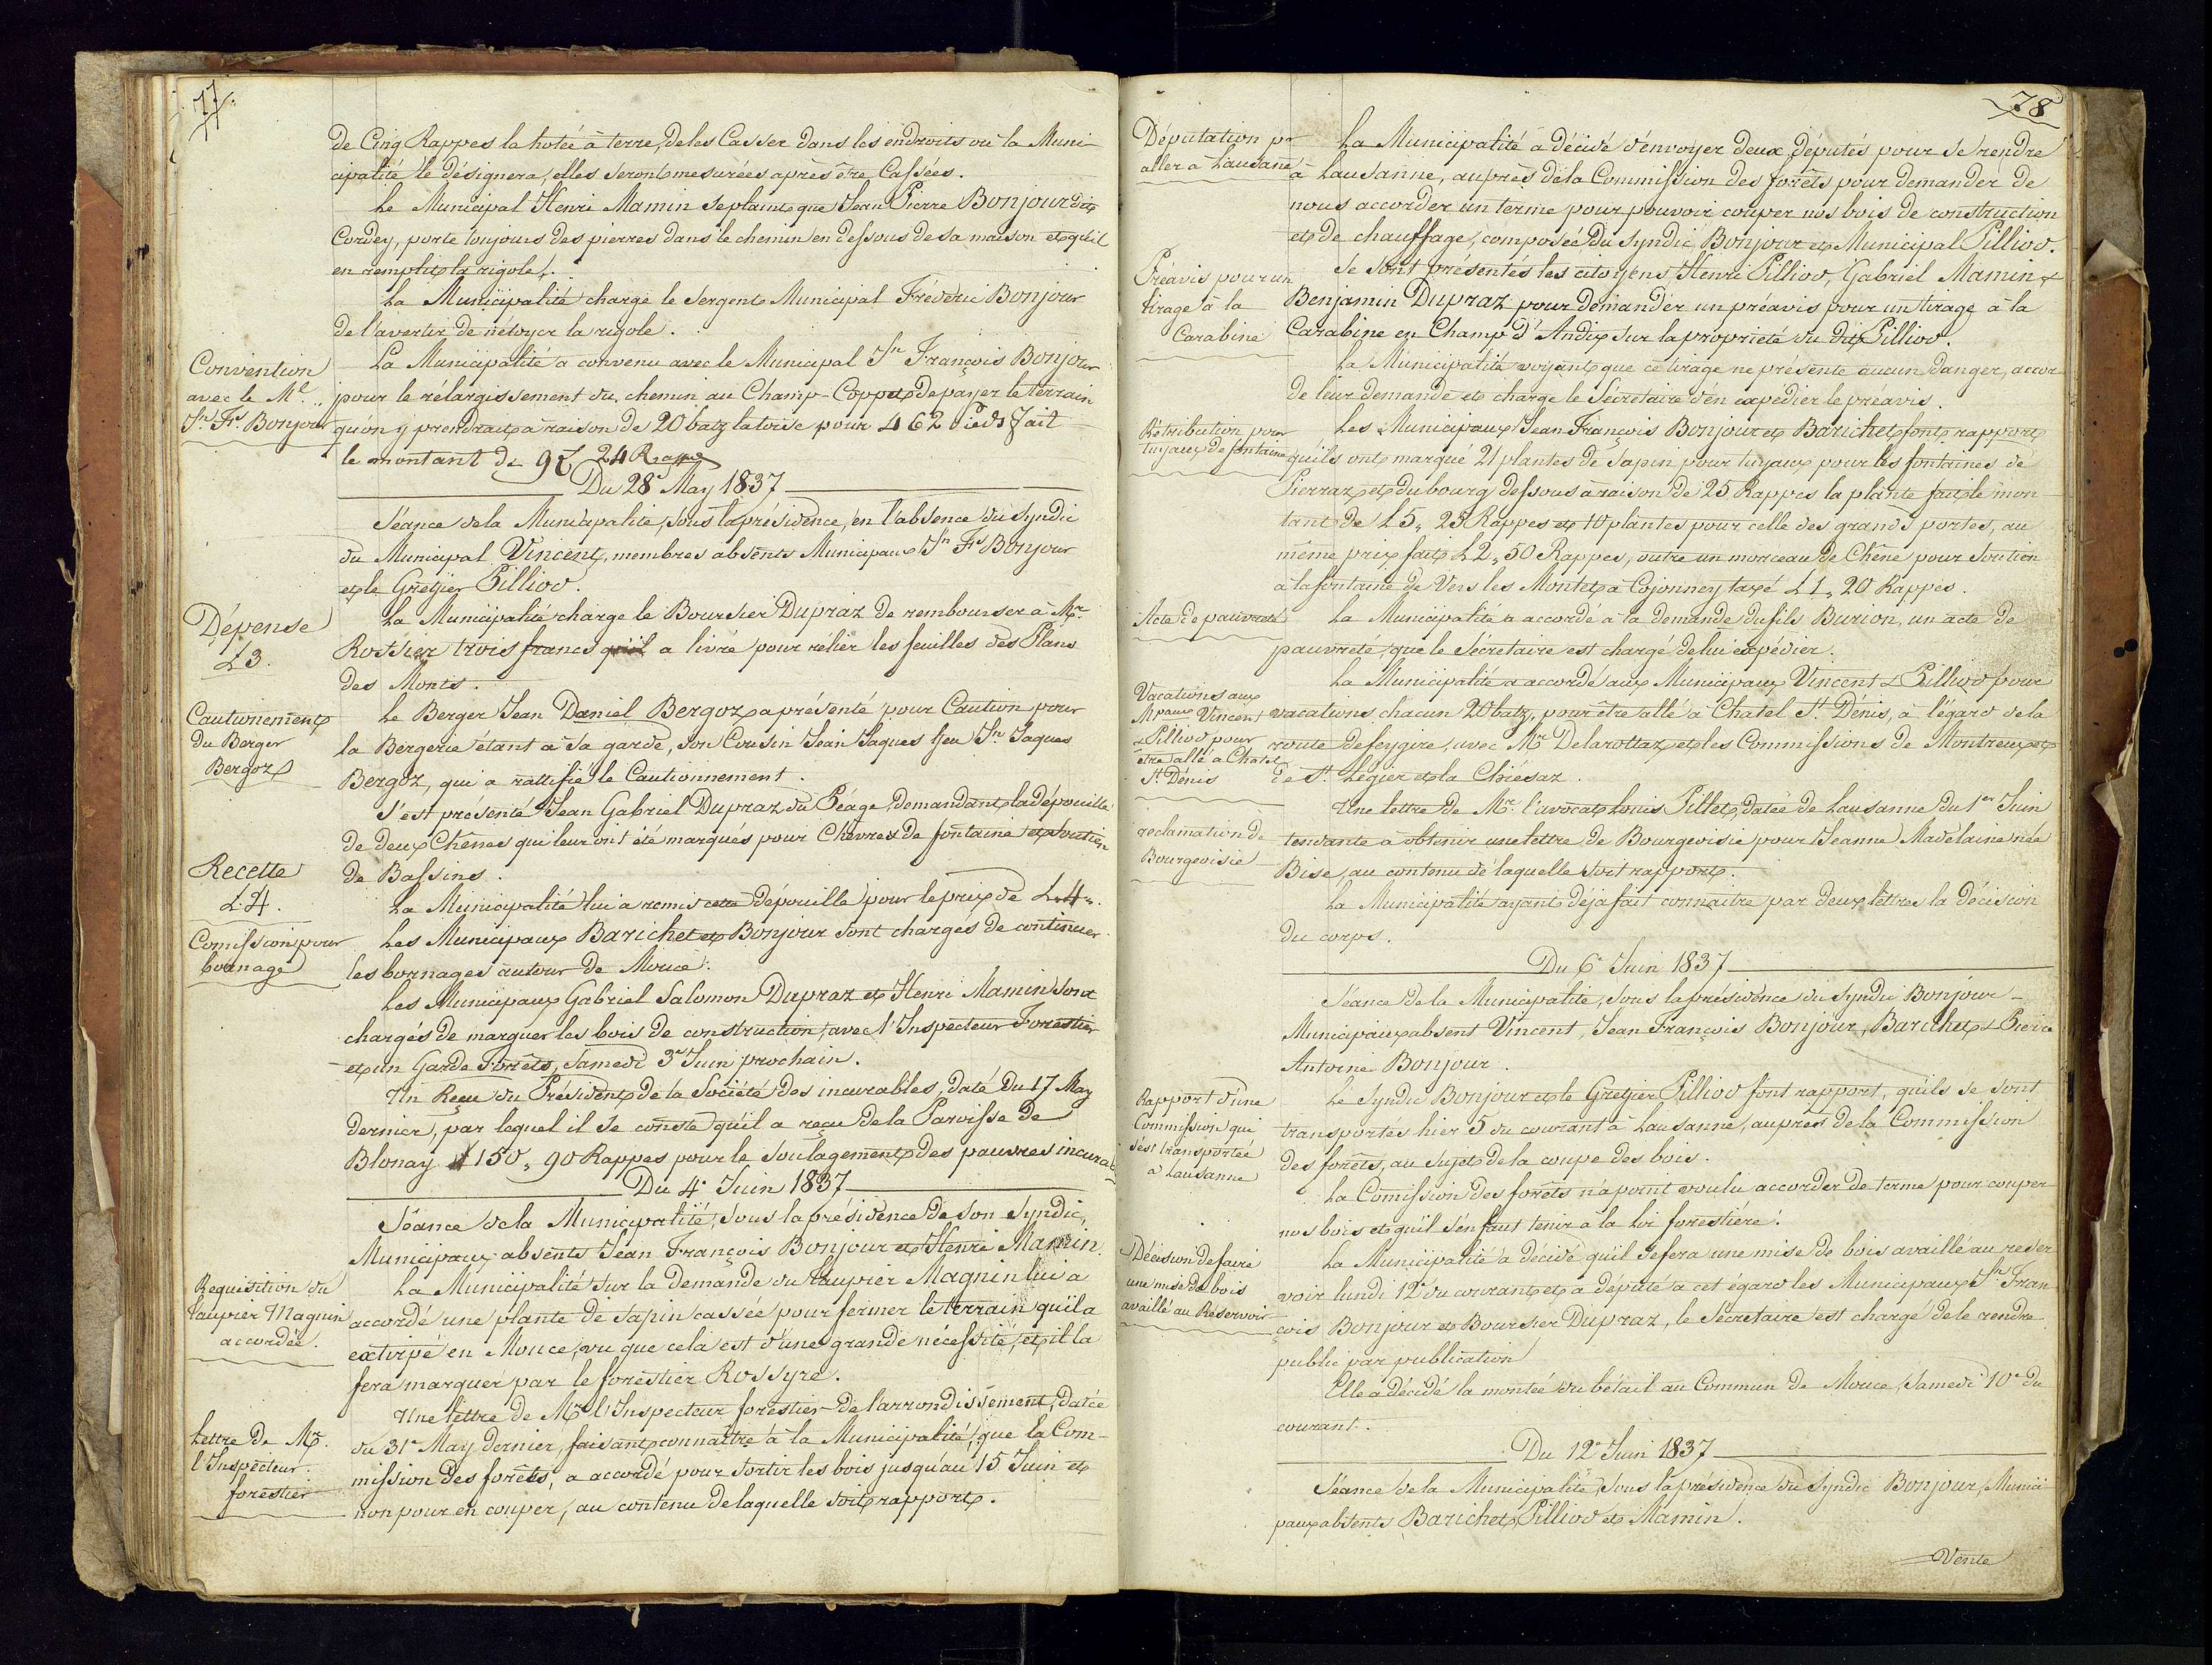 77.
de Cinq Rappes la hotée à terre, de les Casser dans les endroits où la Muni-
cipalité le désignera, elles seront mesurées après être Cassées.
Le Municipal Henri Mamin se plaint que Jean Pierre Bonjour dit
Cordey, porte toujours des pierres dans le chemin en dessous de sa maison et qu'il
en remplit la rigole.
La Municipalité charge le Sergent Municipal Fréderic Bonjour
de l'avertir de nétoyer la rigole.
Convention
avec le Ml.
Jn. Fs. Bonjour
La Municipalité a convenu avec le Municipal Jn François Bonjour
pour le rélargissement du chemin au Champ-Coppet de payer le terrain
qu'on y prendrait à raison de 20 batz la toise pour 462 Pieds fait
le montant de 24 Rappes
Du 28e May 1837
Séance de la Municipalité, sous la présidence, en l'absence du Syndic
du Municipal Vincent, membres absents Municipaux Jn Fs Bonjour
et le Greffier Pilliod.
Dépense
L 3.
La Municipalité charge le Boursier Dupraz de rembourser à Mr.
Rossier trois francs qu'il a livré pour rélier les feuilles des Plans
des Monts.
Cautionnement
du Berger
Bergoz
Le Berger Jean Daniel Bergoz a présenté pour Caution pour
la Bergerie étant à sa garde, son Cousin Jean Jaques feu Jn. Jaques
Bergoz, qui a rattifié le Cautionnement.
S'est présenté Jean Gabriel Dupraz du Péage, demandant la dépouille
de deux Chênes qui leur ont été marqués pour Chèvres de fontaine et soutien
de Bassins.
Recette
L 4.
La Municipalité lui a remis cette dépouille pour le prix de L. 4.
Comission pour
bornage
Les Municipaux Barichet et Bonjour sont chargés de continuer
les bornages autour de Mouce.
Les Municipaux Gabriel Salomon Dupraz et Henri Mamin sont
chargés de marquer les bois de construction, avec l'Inspecteur Forestier
et un Garde Forêts, Samedi 3e Juin prochain.
Un Reçu du Président de la Société des incurables, daté du 17 May
dernier, par lequel il se conste qu'il a reçu de la Paroisse de
Blonay L 150, 90 Rappes pour le Soulagement des pauvres incurab
Du 4e Juin 1837
Séance de la Municipalité, sous la présidence de son Syndic,
Municipaux absents Jean François Bonjour et Henri Mamin.
Requisition du
taupier Magnin
accordée.
La Municipalité sur la demande du taupier Magnin lui a
accordé une plante de sapin cassée pour fermer le terrain qu'il a
extirpé en Mouce, vu que cela est d'une grande nécessité, et il la
fera marquer par le forestier Rossyre.
Lettre de Mr.
l'Inspecteur
forestier
Une lettre de Mr l'Inspecteur forestier de l'arrondissement, datée
du 31e May dernier, faisant connaître à la Municipalité, que la Com-
mission des forêts, a accordé pour sortir les bois jusqu'au 15 Juin et
non pour en couper, au contenu de laquelle soit rapport.
78
Députation pr
aller à Lausane
La Municipalité a décidé d'envoyer deux députés pour se rendre
à Lausanne, auprès de la Commission des forêts pour demander de
nous accorder un terme pour pouvoir couper nos bois de construction
et de chauffage, composée du Syndic Bonjour et Municipal Pilliod.
Préavis pour un
tirage à la
Carabine
Se sont présentés les citoyens Henri Pilliod, Gabriel Mamin &
Benjamin Dupraz pour demander un préavis pour un tirage à la
Carabine en Champ d'Andix sur la propriété du dit Pilliod.
La Municipalité voyant que ce tirage ne présente aucun danger, accor
de leur demande et charge le Sécretaire d'en expédier le préavis.
Rétribution pour
tuyaux de fontaine
Les Municipaux Jean François Bonjour et Barichet font rapport
qu'ils ont marqué 21 plantes de Sapin pour tuyaux pour les fontaines de
Pierraz et du bourg dessous à raison de 25 Rappes la plante fait le mon
tant de L 5, 25 Rappes et 10 plantes pour celle des grands portes, au
même prix fait L 2, 50 Rappes, outre un morceau de Chêne pour soutien
à la fontaine de Vers les Montet à Cojonney taxé L 1, 20 Rappes.
Acte de pauvreté
La Municipalité a accordé à la demande du fils Burion, un acte de
pauvreté, que le Sécretaire est chargé de lui expédier.
Vacations aux
Mpaux Vincent
& Pilliod pour
être allé à Chatel
St. Dénis
La Municipalité a accordé aux Municipaux Vincent & Pilliod pour
vacations chacun 20 batz, pour être allé à Chatel St. Denis, à l'égard de la
route de feygire, avec Mr Delarottaz et les Commissions de Montreux et
de St. Légier et la Chiésaz.
réclamation de
Bourgeoisie
Une lettre de Mr. l'avocat Louis Pillet, datée de Lausanne du 1er Juin
tendante à obtenir une lettre de Bourgeoisie pour Jeanne Madelaine née
Bise, au contenu de laquelle soit rapport.
La Municipalité ayant déja fait connaitre par deux lettres la décision
du corps.
Du 6e Juin 1837
Séance de la Municipalité, sous la présidence du Syndic Bonjour
Municipaux absent Vincent, Jean François Bonjour, Barichet & Pierre
Antoine Bonjour.
Rapport d'une
Commission qui
s'est transportée
à Lausanne
Le Syndic Bonjour et le Greffier Pilliod font rapport, qu'ils se sont
transportés hier 5 du courant à Lausanne, auprès de la Commission
des forêts, au sujet de la coupe des bois.
La Comission des forêts n'a point voulu accorder de terme pour couper
nos bois et qu'il s'en faut tenir à la loi forestière.
Décision de faire
une mise de bois
availlé au Réservoir
La Municipalité a décidé qu'il se fera une mise de bois availlé au reser
voir lundi 12e du courant et a député à cet égard les Municipaux Jn. Fran
çois Bonjour et Boursier Dupraz, le Sécretaire est chargé de le rendre
public par publication
Elle a décidé la montée du bétail au Commun de Mouce, Samedi 10e du
courant.
Du 12e Juin 1837
Séance de la Municipalité, sous la présidence du Syndic Bonjour, Munici
paux absents Barichet, Pilliod et Mamin.
Vente